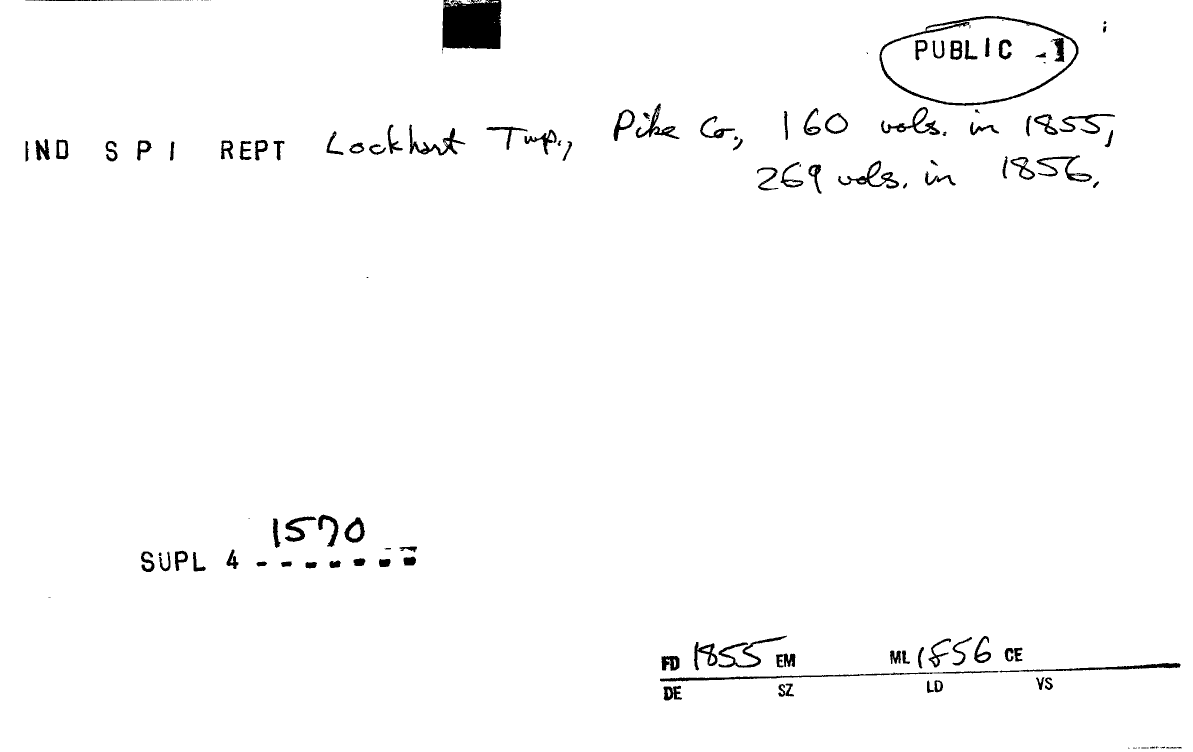 PUBLIC -1
IND S P I REPT Lockhart Twp., Pike Co., 160 vols. in 1855,
269 vols. in 1856.
1570
SUPL 4 - - - - - - -
FD 1855 EM ML 1856 CE
DE SZ LD VS